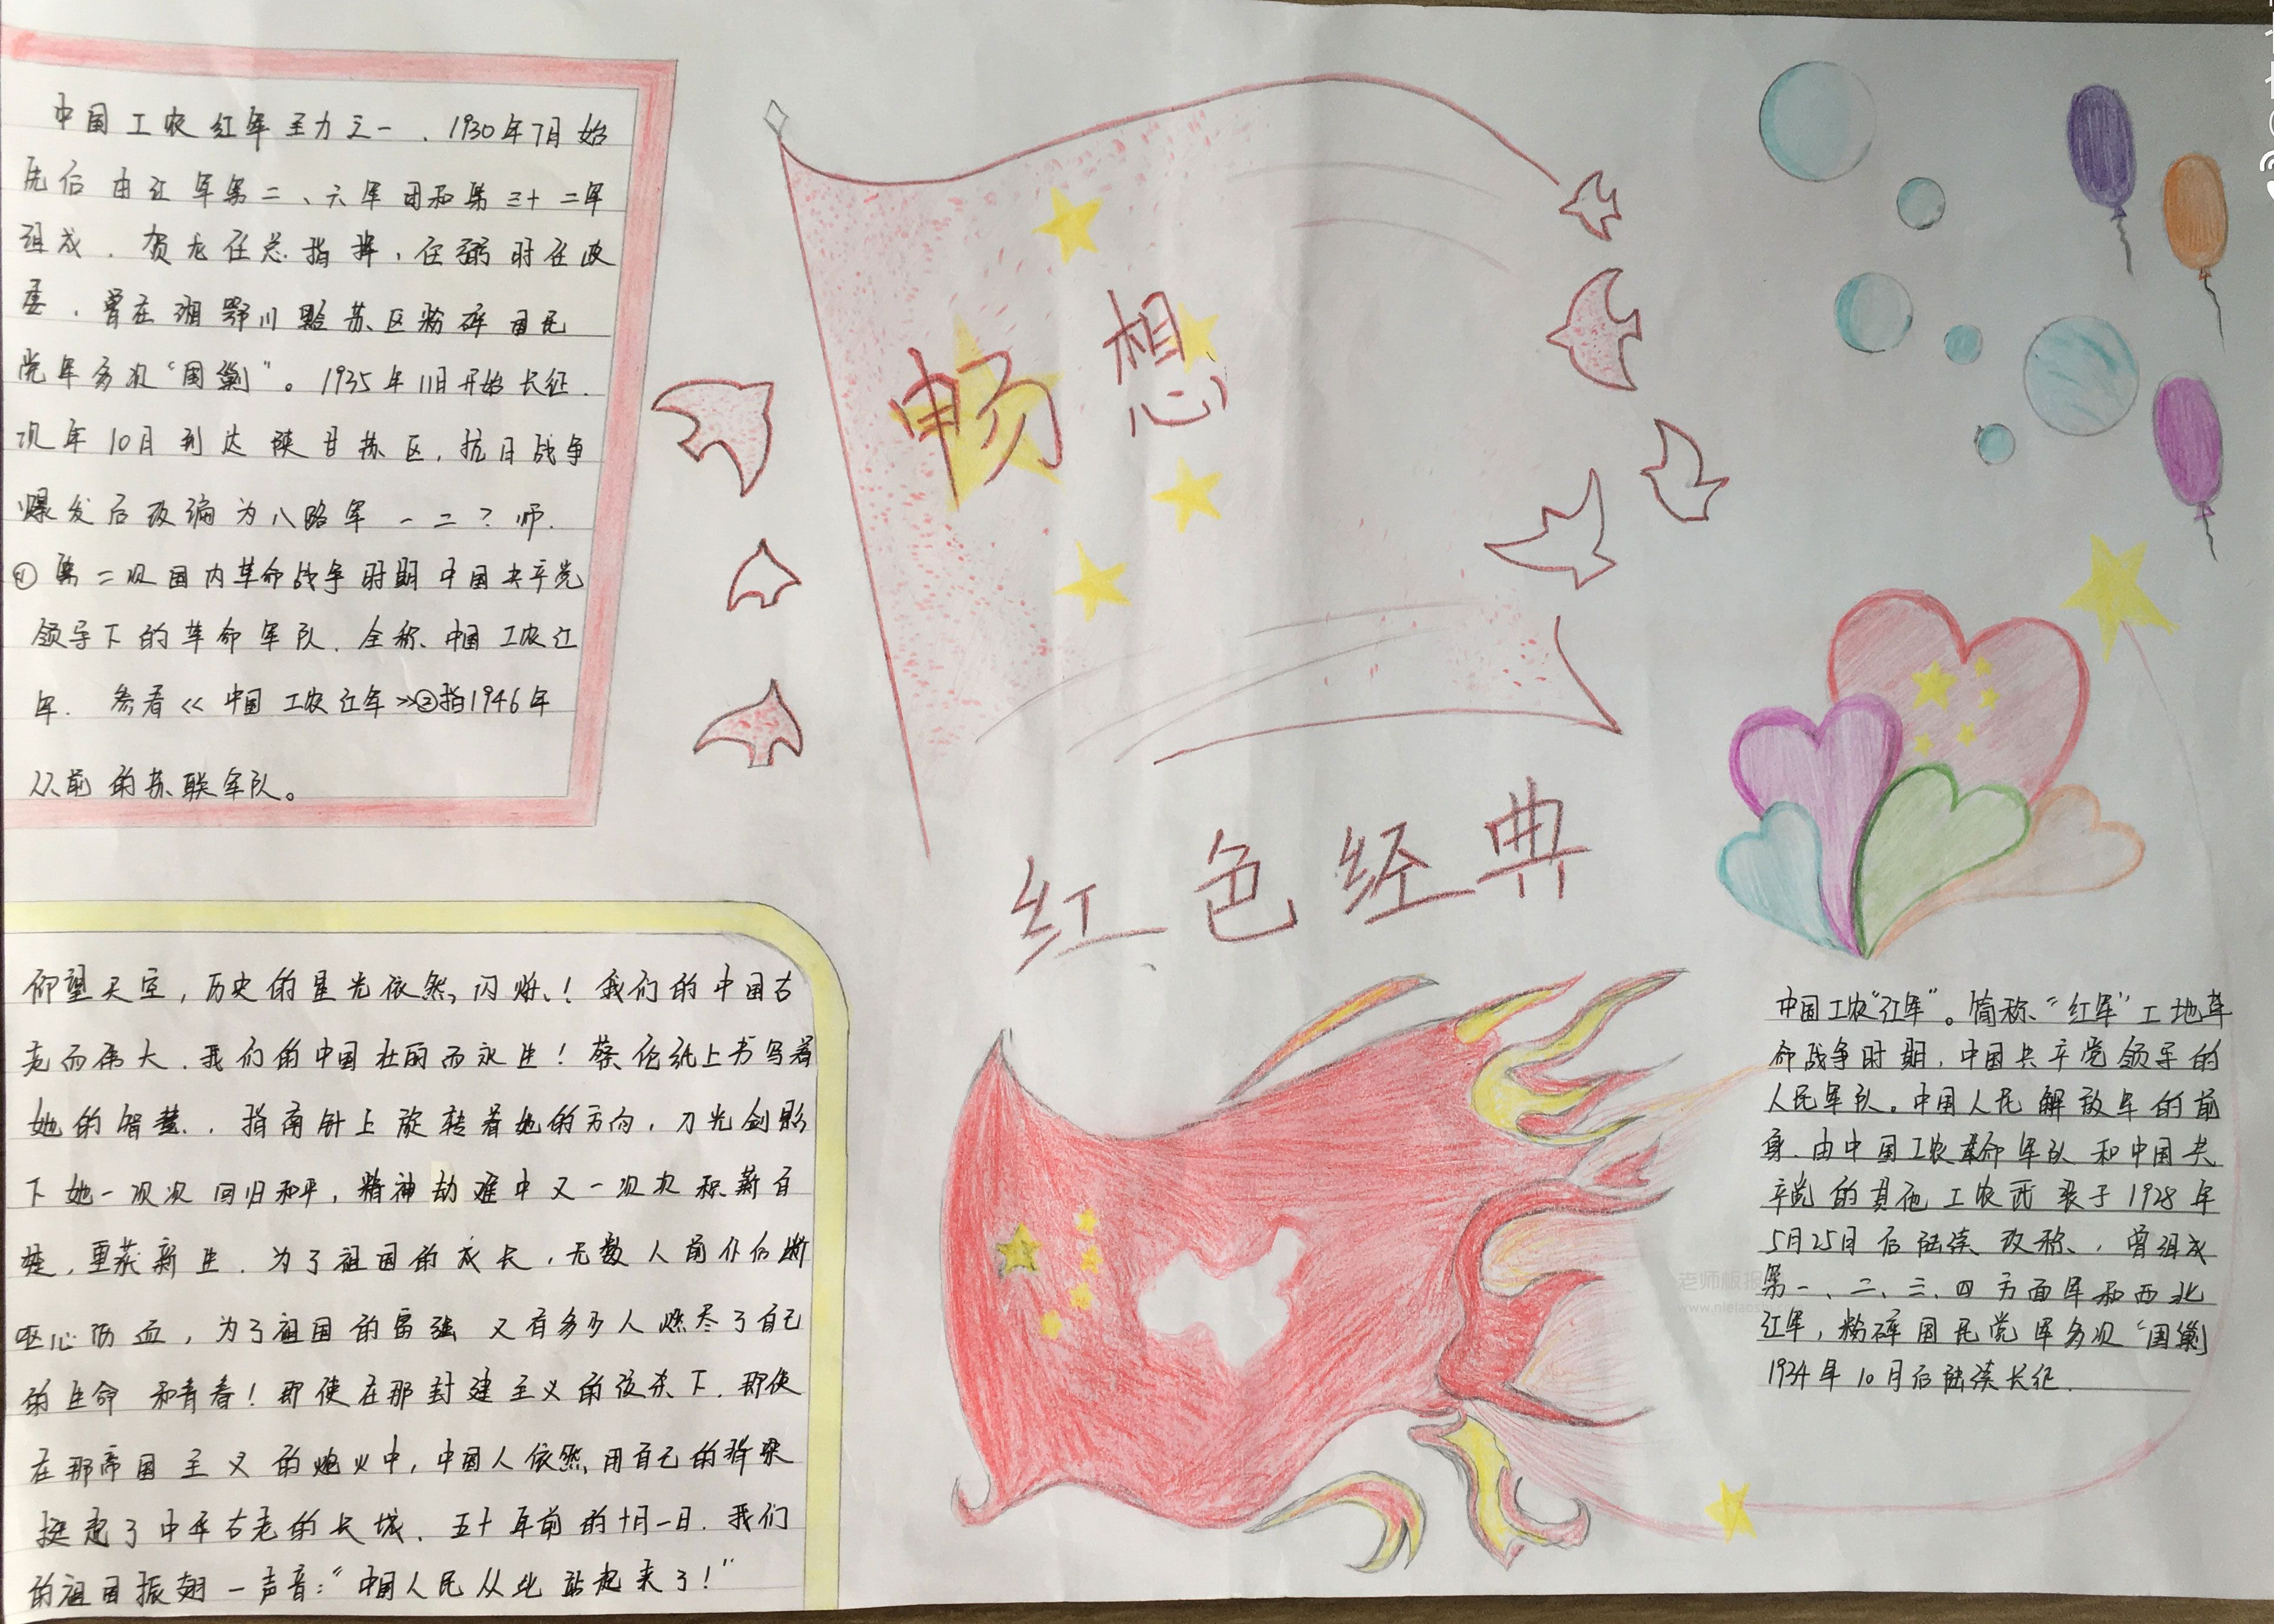 中国工农红军主力之一、1930年7月始
先后由红军第二、六军团和第三十二军
组成．贺龙任总指挥，任弼时任政
委．曾在湘鄂川黔苏区粉碎国民
党军多次“围剿”。1935年11月开始长征．
次年10月到达陕甘苏区，抗日战争
爆发后改编为八路军一二？师．
①第二次国内革命战争时期中国共产党
领导下的革命军队．全称、中国工农红
军．参看《中国工农红军》②指1946年
以前的苏联军队。
畅想
红色经典
仰望天空，历史的星光依然闪烁！我们的中国古
老而伟大．我们的中国壮丽而永生！蔡伦纸上书写着
她的智慧．，指南针上旋转着她的方向，刀光剑影
下她一次次回归和平，精神劫难中又一次次积薪自
焚，重获新生．为了祖国的成长，无数人前仆后继
呕心沥血，为了祖国的富强又有多少人燃尽了自己
的生命和青春！即使在那封建主义的夜杀下．即使
在那帝国主义的炮火中，中国人依然用自己的脊梁
挺起了中华古老的长城．五十年前的十月一日．我们
的祖国振翅一声音：“中国人民从此站起来了！”
中国工农“红军”。简称“红军”工地革
命战争时期．中国共产党领导的
人民军队。中国人民解放军的前
身．由中国工农革命军队和中国共
产党的其他工农武装于1928年
5月25日后陆续改称、，曾组成
第一、二、三、四方面军和西北
红军，粉碎国民党军多次“围剿
1934年10月后陆续长征．
老师板报